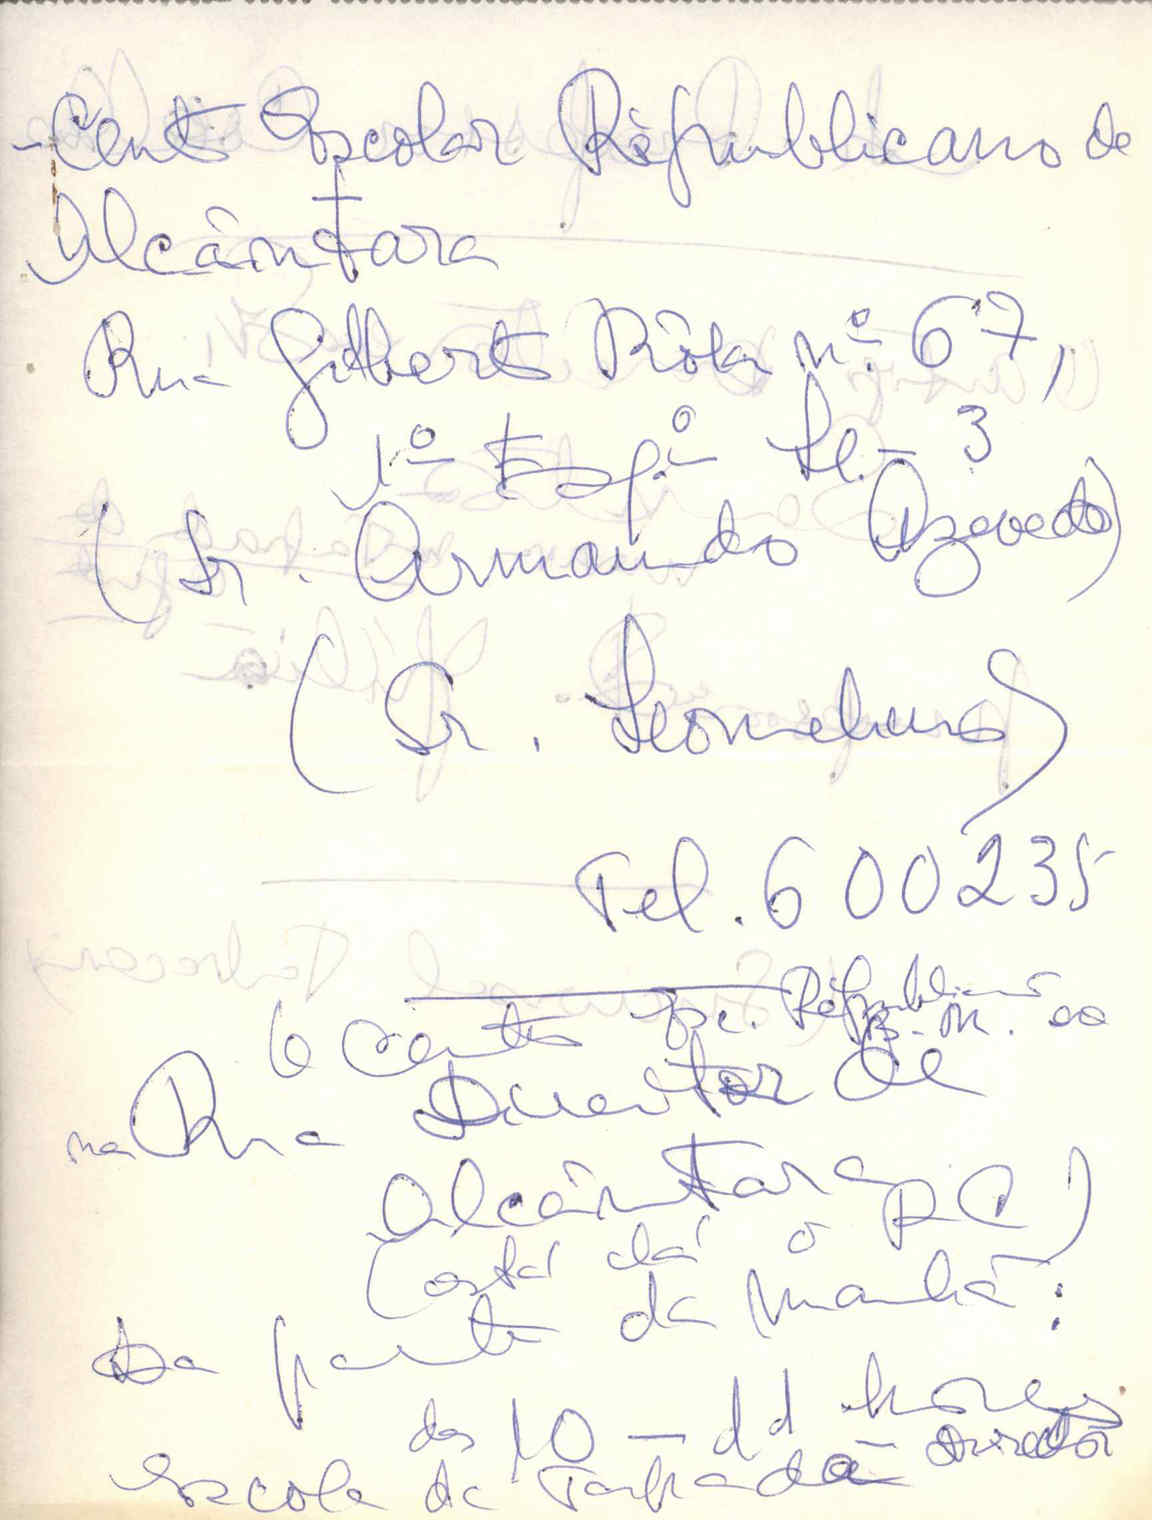 - Cent Escolar Républicano de
Alcântara
Rua Gilbert Rôla nº. 67,
1º Esqº Sl. - 3
(Sr. Armando Azevedo)
(Sr.
Tel. 600235
O Cent Esc. Républicano
B. M. ao
na Rua Director de
Alcântara
(está lá o PC)
Da parte da manhã:
das 10 - 11 horas
Escola da Tapada Director